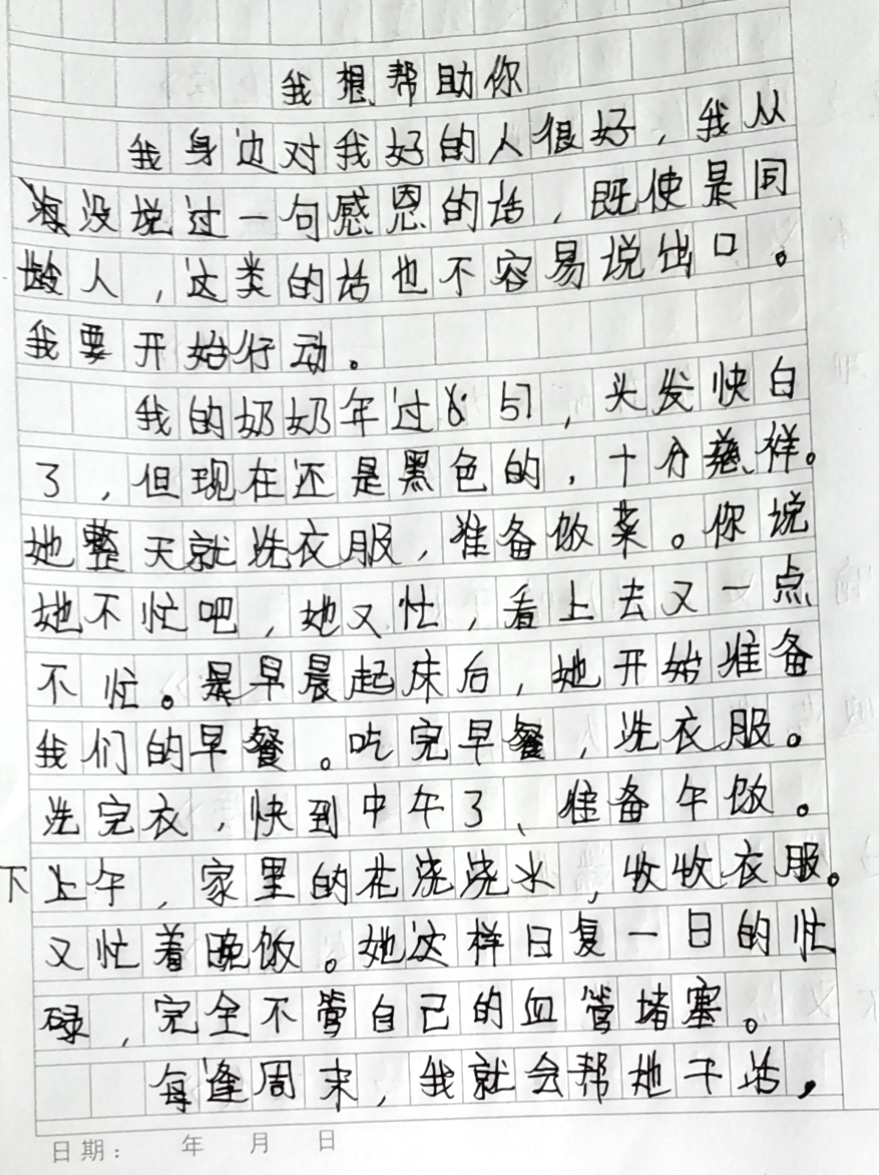 我想帮助你
我身边对我好的人很好，我从
没说过一句感恩的话，既使是同
龄人，这类的话也不容易说出口。
我要开始行动。
我的奶奶年过，头发快白
了，但现在还是黑色的，十分慈祥。
她整天就洗衣服，准备饭菜。你说
她不忙吧，她又忙，看上去又一点
不忙。是早晨起床后，她开始准备
我们的早餐。吃完早餐，洗衣服。
洗完衣，快到中午了、准备午饭。
下午，家里的花浇浇水，收收衣服。
又忙着晚饭。她这样日复一日的忙
碌，完全不管自己的血管堵塞。
每逢周末，我就会帮她干活，
日期： 年 月 日